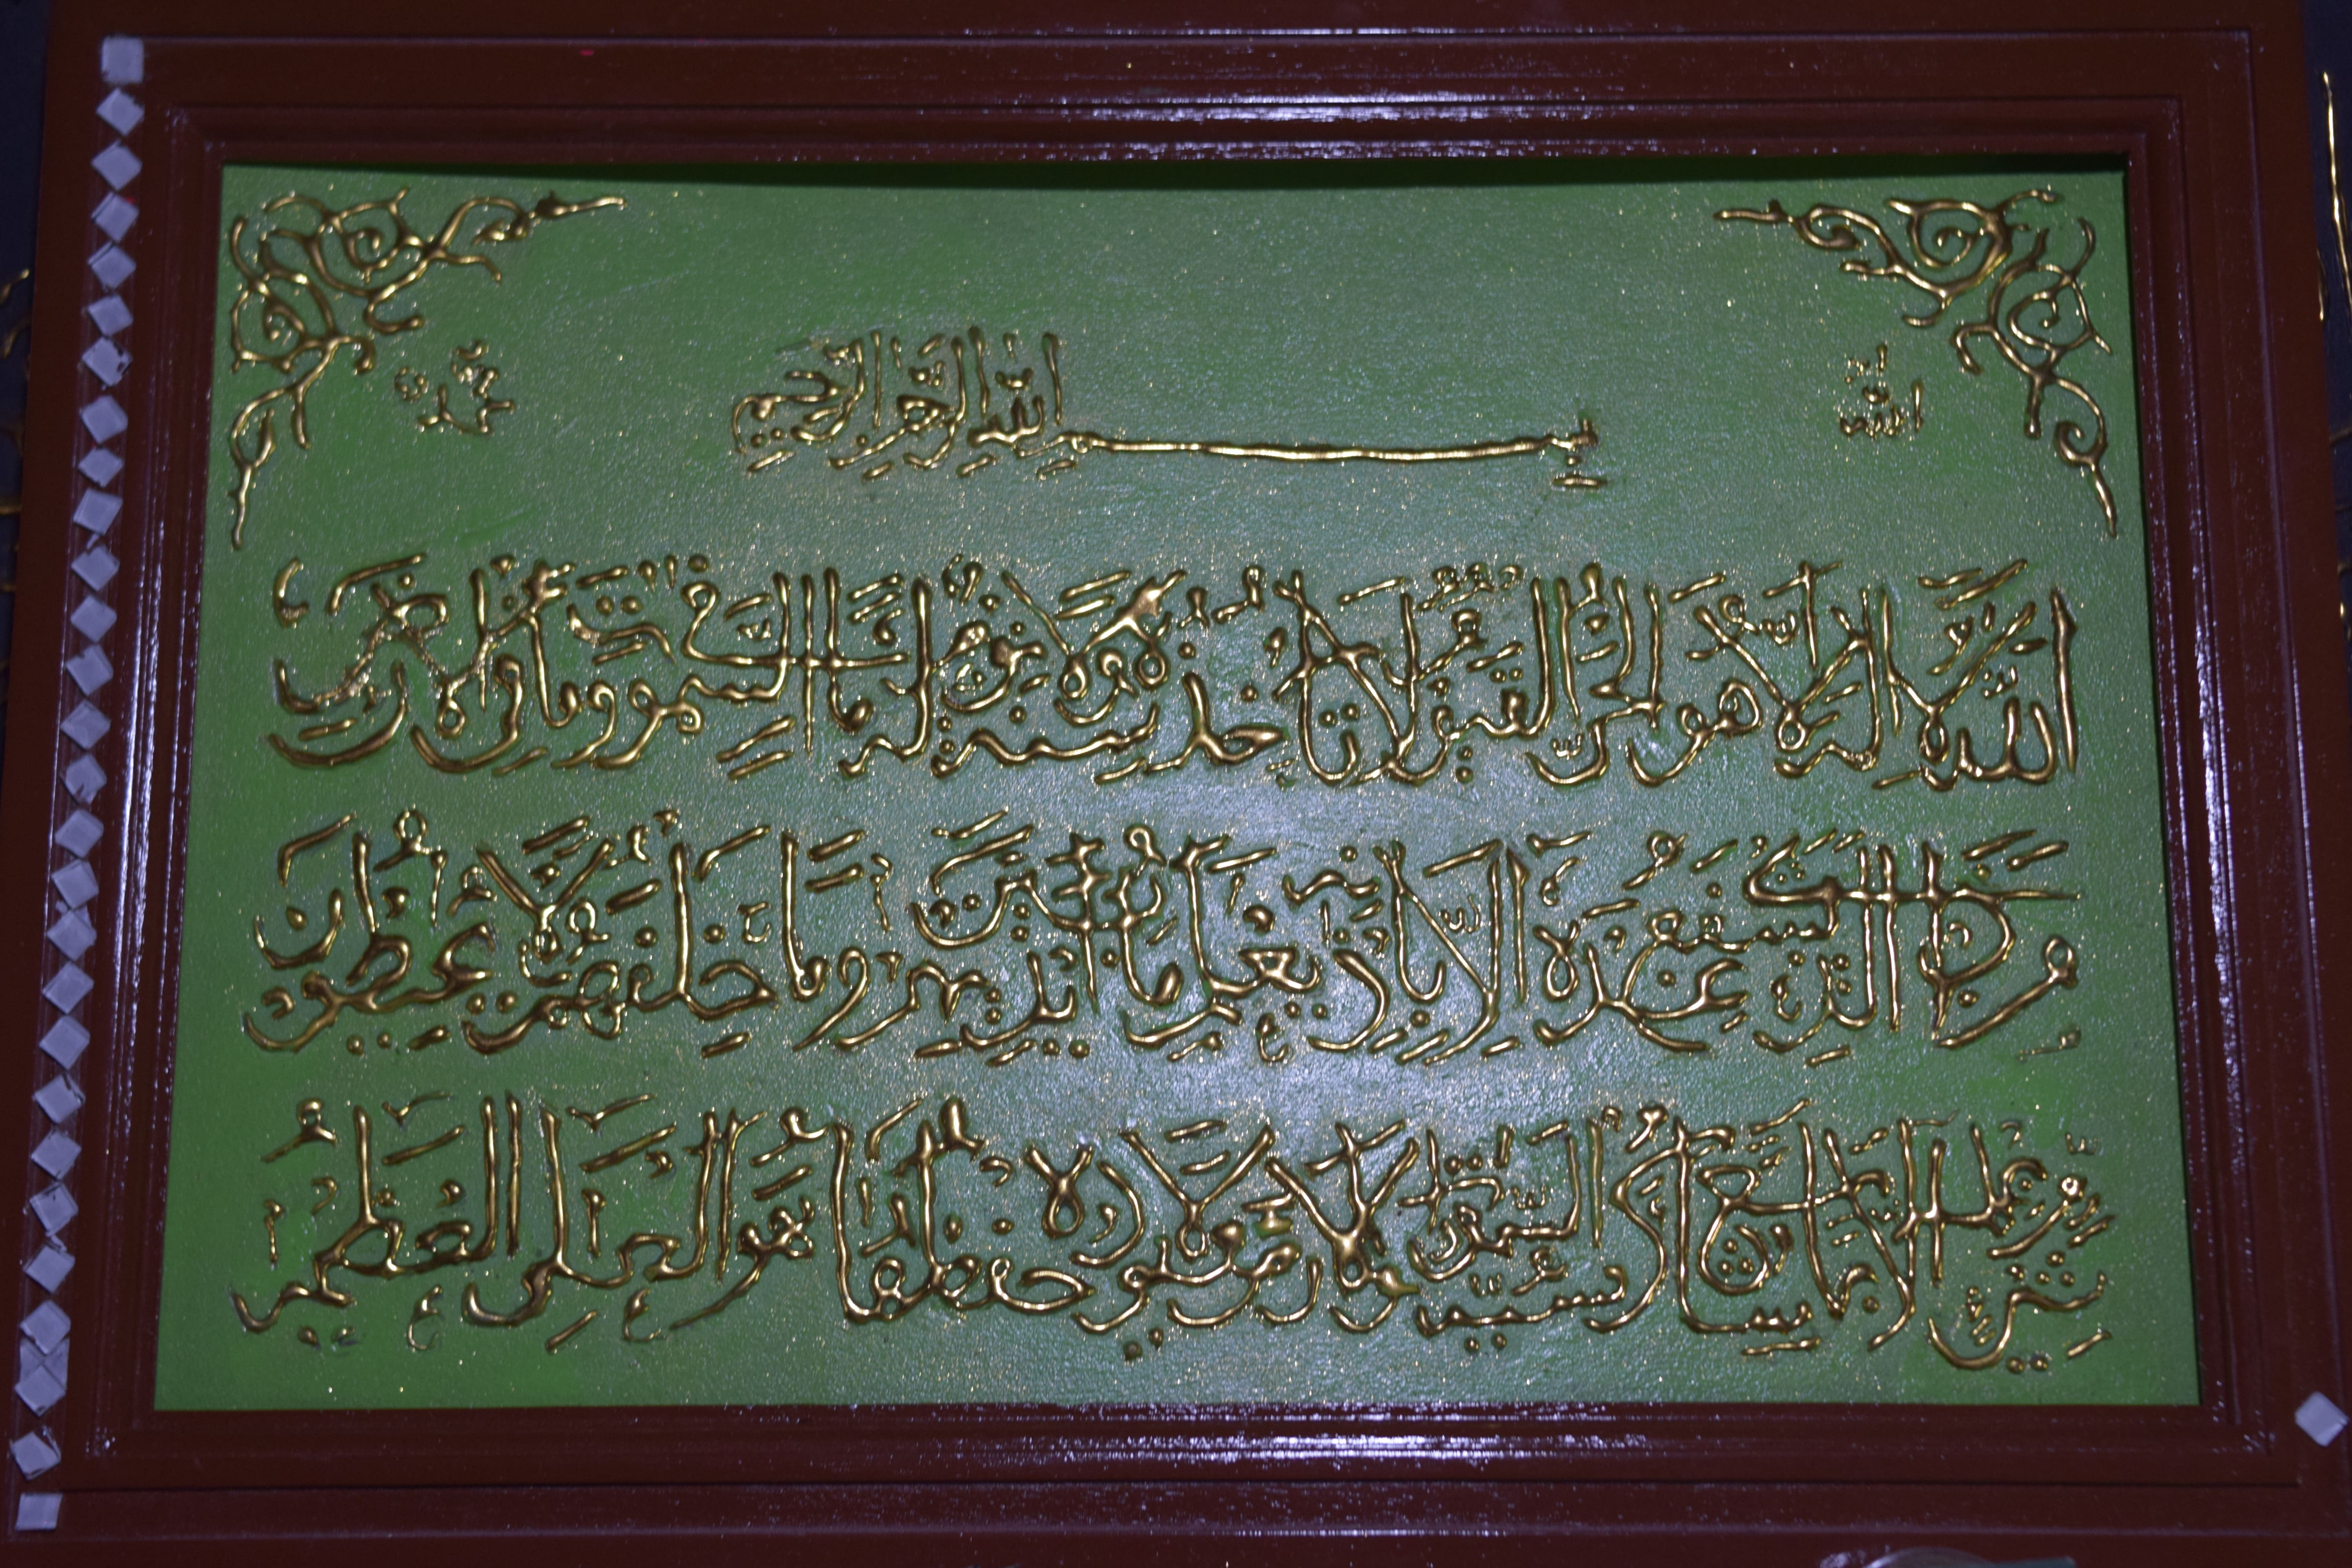 الله
بسم الله الرحمن الرحيم
محمد
الله لا إله إلا هو الحي القيوم لا تأخذه سنة ولا نوم له ما في السموت وما في الأرض
من ذا الذي يشفع عنده إلا بإذنه يعلم ما بين أيديهم وما خلفهم ولا يحيطون
بشيء من علمه إلا بما شاء وسع كرسيه السموت والأرض ولا يؤده حفظهما وهو العلي العظيم